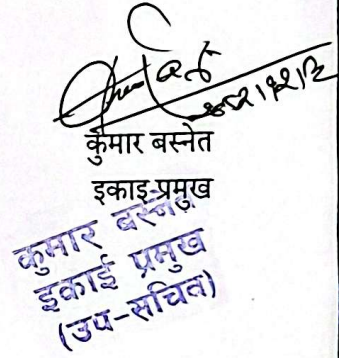 कुमार बस्नेत
इकाइ-प्रमुख
कुमार बस्नेत
इकाई प्रमुख
(उप-सचिव)